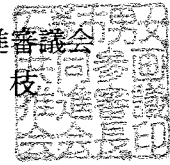 進審議会
枝
市男女
共同参画
推進審議
会会長印